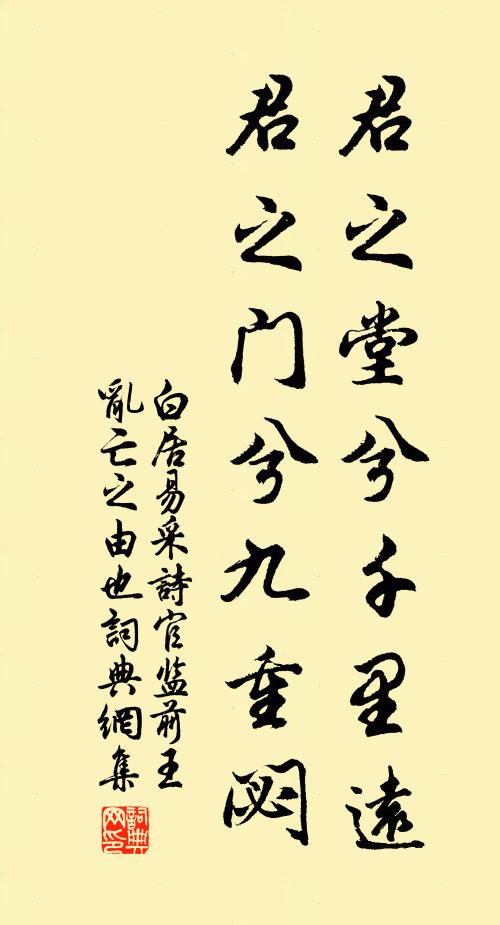 君之堂兮千里遠
君之门兮九重閟
白居易采詩官监前王
亂亡之由也詞典網集
詞典
网印